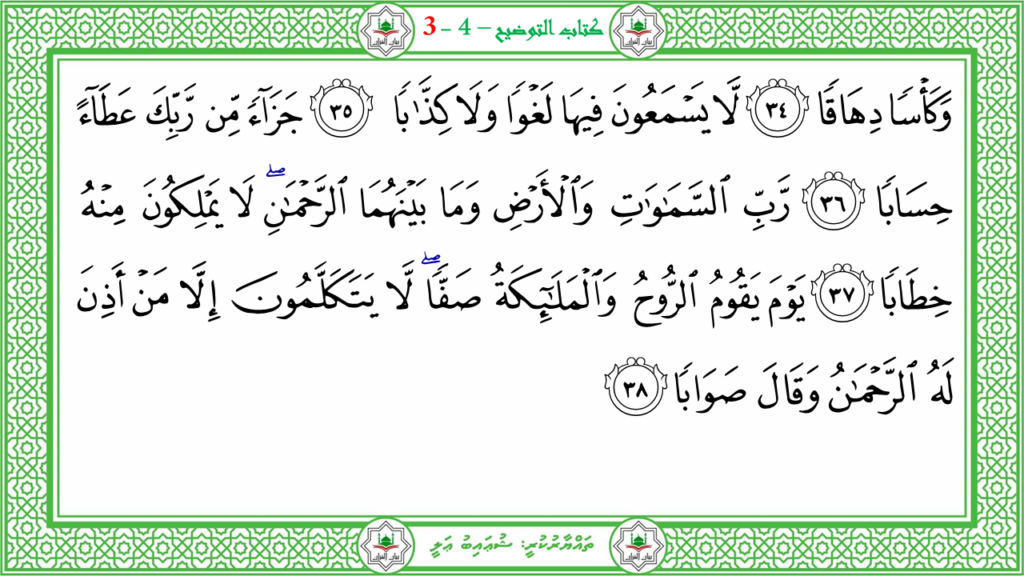 كتاب التوضيح – 4 - 3
وَكَأۡسٗا دِهَاقٗا ٣٤ لَّا يَسۡمَعُونَ فِيهَا لَغۡوٗا وَلَا كِذَّٰبٗا ٣٥ جَزَآءٗ مِّن رَّبِّكَ عَطَآءً
حِسَابٗا ٣٦ رَّبِّ ٱلسَّمَٰوَٰتِ وَٱلۡأَرۡضِ وَمَا بَيۡنَهُمَا ٱلرَّحۡمَٰنِۖ لَا يَمۡلِكُونَ مِنۡهُ
خِطَابٗا ٣٧ يَوۡمَ يَقُومُ ٱلرُّوحُ وَٱلۡمَلَٰٓئِكَةُ صَفّٗاۖ لَّا يَتَكَلَّمُونَ إِلَّا مَنۡ أَذِنَ
لَهُ ٱلرَّحۡمَٰنُ وَقَالَ صَوَابٗا ٣٨
ތައްޔާރުކުރީ: ޝުޢައިބު ޢަލީ